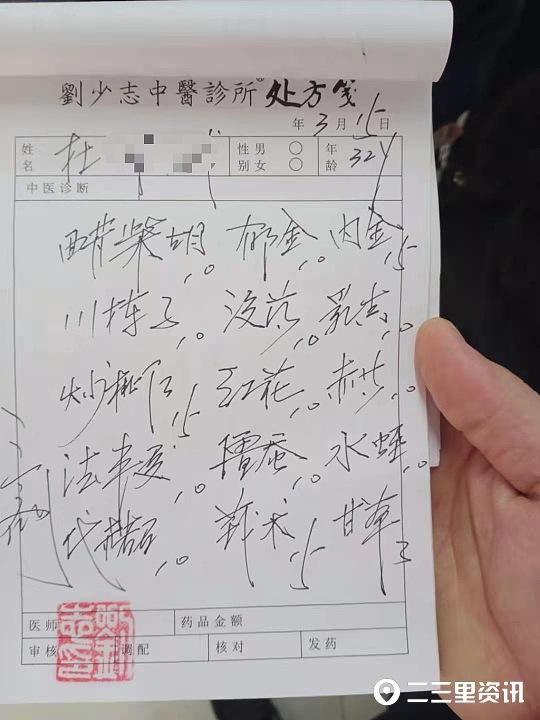 劉少志中醫診所 处方笺
年 3 月 15 日
姓名 杜 性别 男 ○ 女 ○ 年龄 32岁
中医诊断
醋柴胡10 郁金10 内金15
川楝子10 没药10 乳香10
炒桃仁15 红花10 赤芍10
法半夏10 僵蚕10 水蛭10
代赭石10 莪术15 甘草3
医师 药品金额
审核 调配 核对 发药
二三里资讯